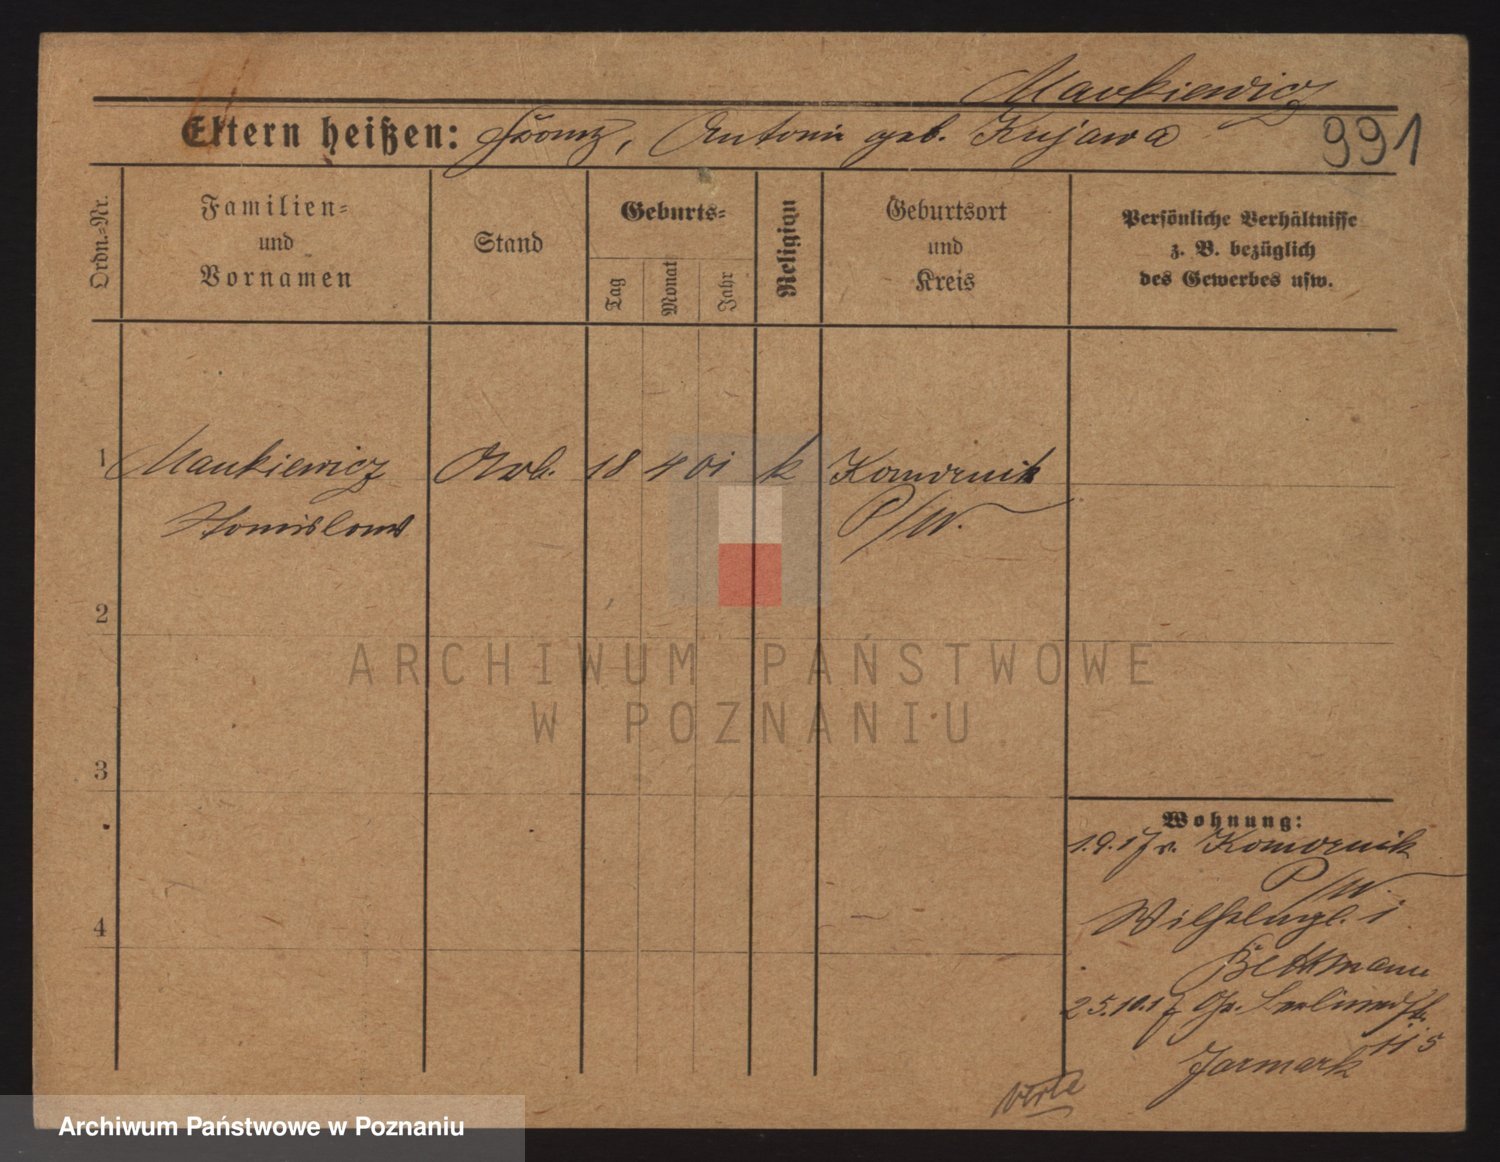 Mankiewicz
Eltern heißen: Franz, Antonie geb. Kujawa
991
Ordn.=Nr.
Familien=
und
Vornamen
Stand
Geburts=
Tag
Monat
Jahr
Religion
Geburtsort
und
Kreis
Persönliche Verhältnisse
z. B. bezüglich
des Gewerbes usw.
1 Mankiewicz Arb. 18 4 01 k Komornik
Stanislaus P/W.
2
3
4
Wohnung:
1.9.17 v. Komornik
P/W.
i
Bettmann
25.10.17 Gr. Berlinerstr.
115
Jarmark
ARCHIWUM PAŃSTWOWE
W POZNANIU
Archiwum Państwowe w Poznaniu